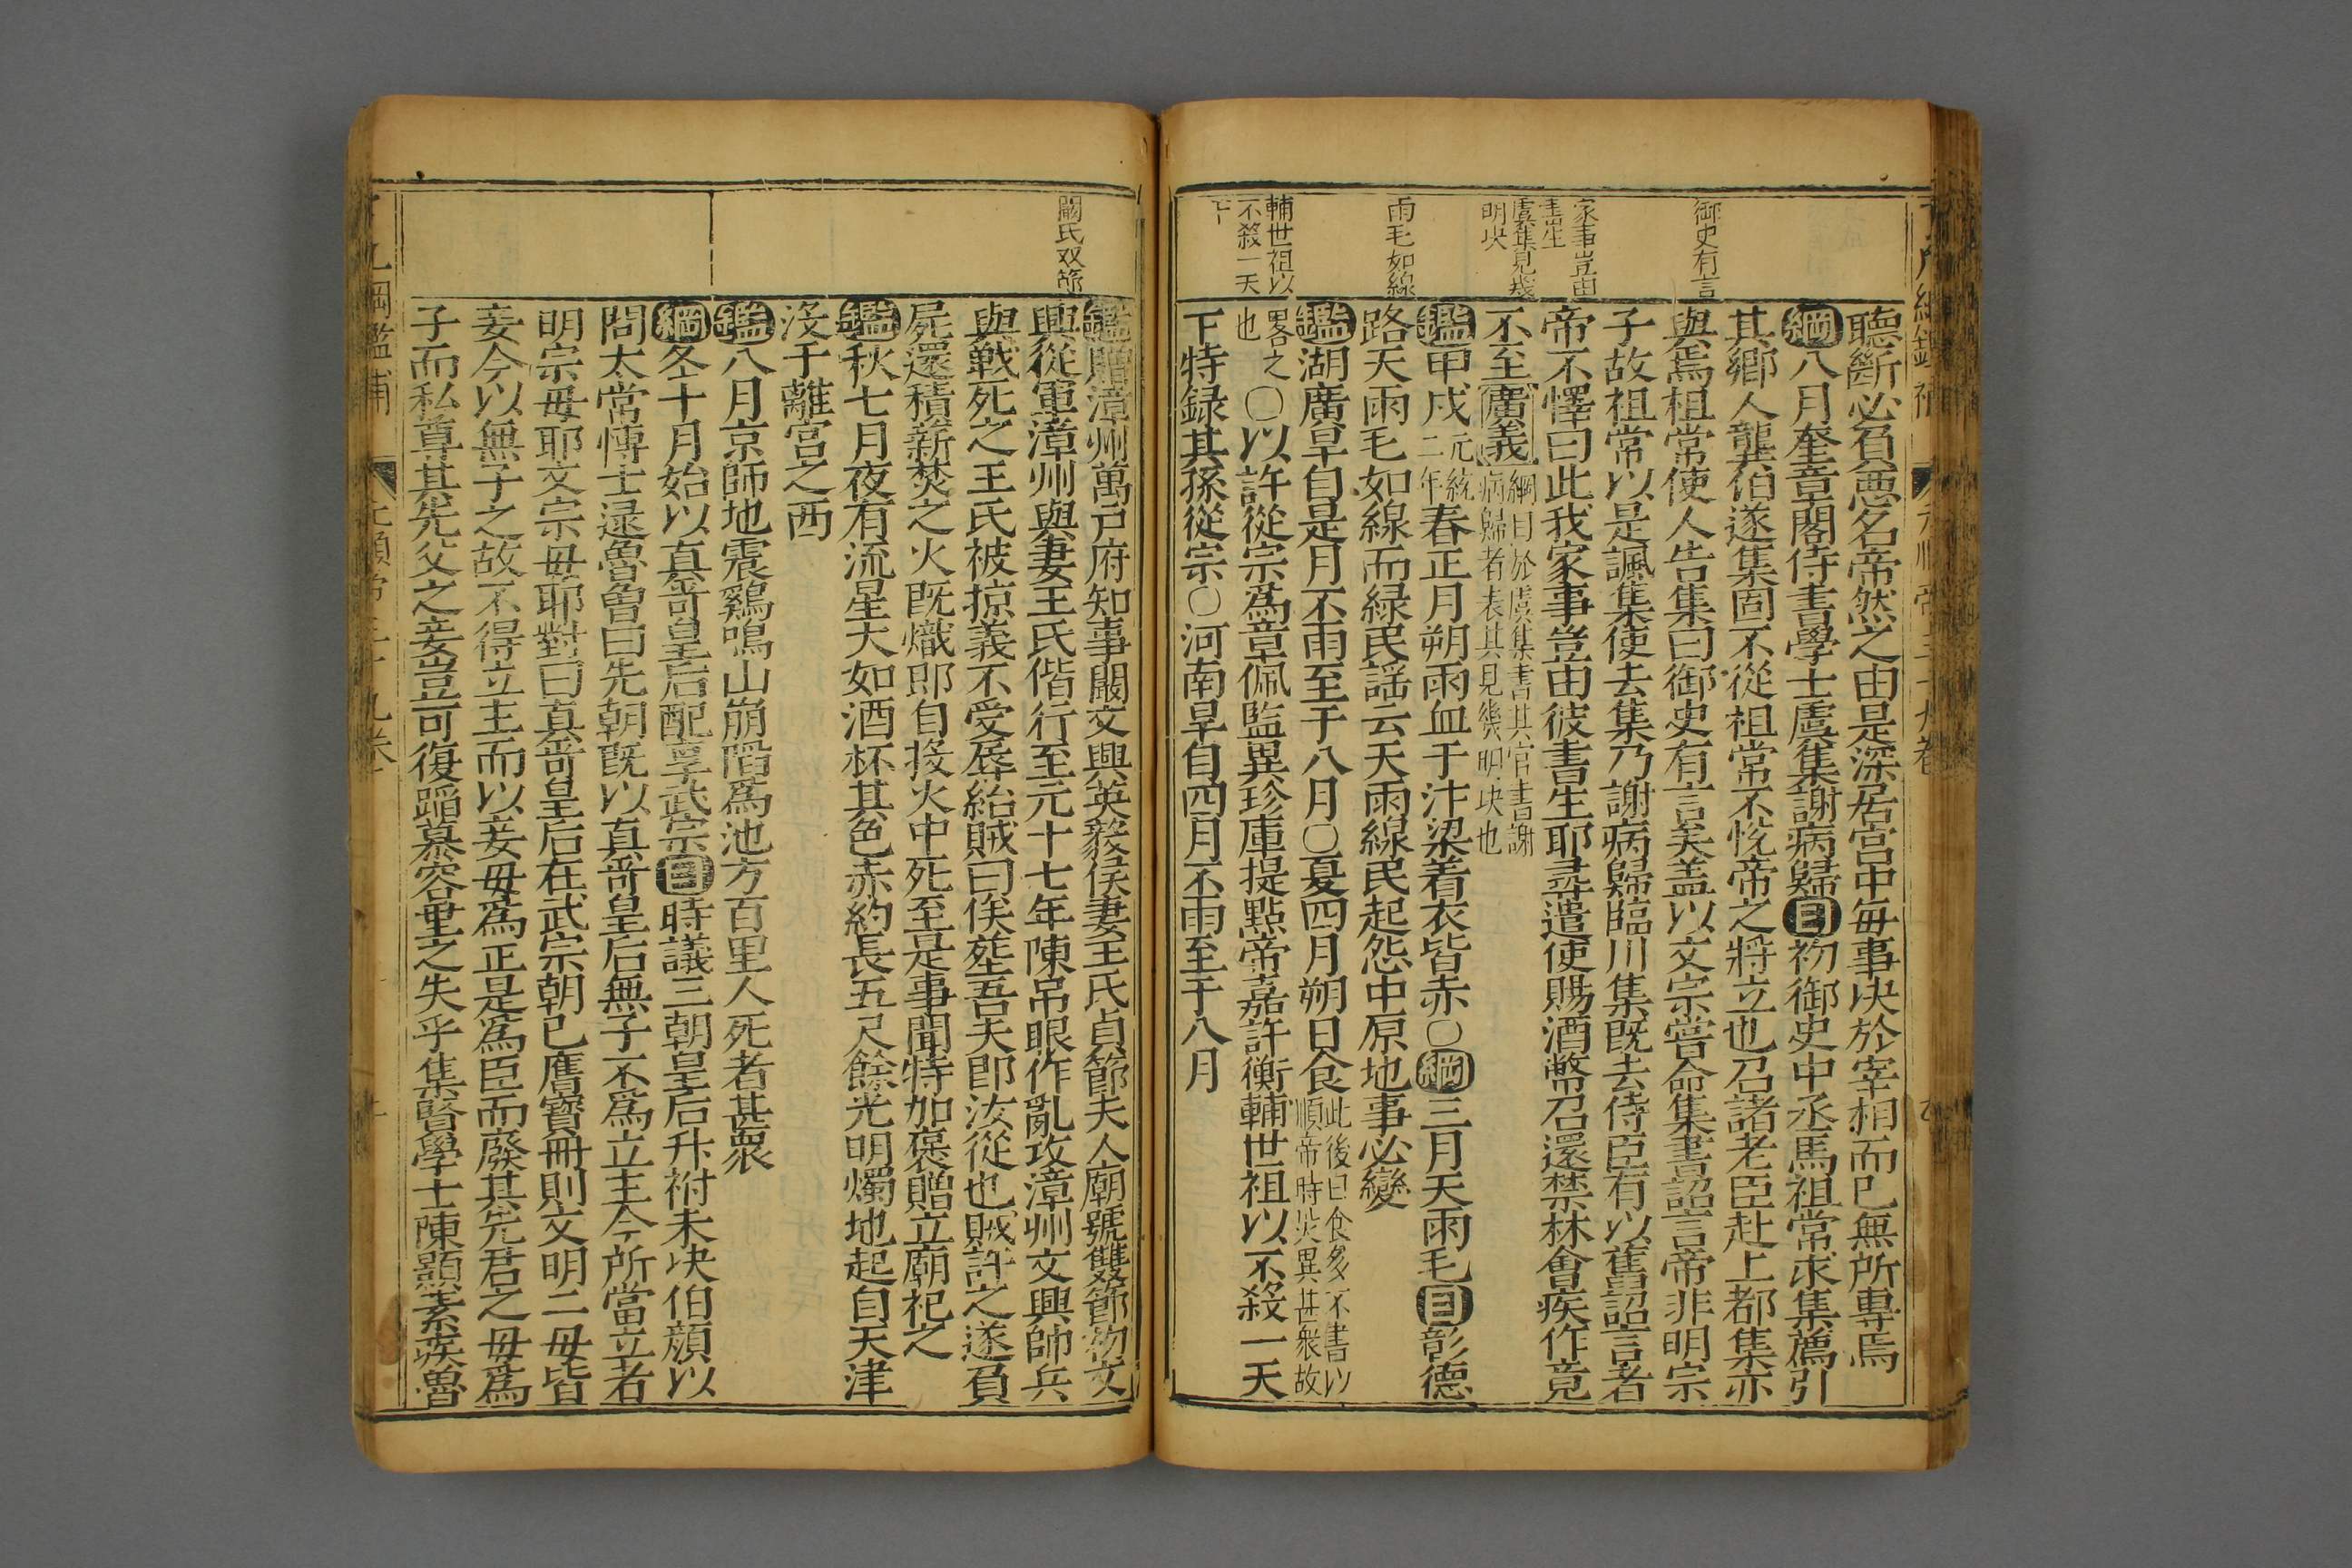 聽斷必負惡名帝然之由是深居宮中每事决於宰相而已無所專焉
綱八月奎章閣侍書學士虞集謝病歸目初御史中丞馬祖常求集薦引
其鄉人龔伯遂集固不從祖常不悅帝之將立也召諸老臣赴上都集亦
與焉祖常使人告集曰御史有言矣盖以文宗嘗命集書詔言帝非明宗
子故祖常以是諷集使去集乃謝病歸臨川集既去侍臣有以舊詔言者
帝不懌曰此我家事豈由彼書生耶尋遣使賜酒幣召還禁林會疾作竟
不至廣義綱目於虞集書其官書謝
病歸者表其見幾明决也
鑑甲戌元統
二年春正月朔雨血于汴梁着衣皆赤〇綱三月天雨毛目彰德
路天雨毛如線而綠民謡云天雨線民起怨中原地事必變
鑑湖廣旱自是月不雨至于八月〇夏四月朔日食此後日食多不書以
順帝時災異甚衆故
畧之
也〇以許從宗爲章佩監異珍庫提點帝嘉許衡輔世祖以不殺一天
下特録其孫從宗〇河南旱自四月不雨至于八月
御史有言
家事豈由
書生
虞集見幾
明决
雨毛如線
輔世祖以
不殺一天
下
鑑贈漳州萬戸府知事闞文興英毅侯妻王氏貞節夫人廟號雙節初文
興從軍漳州與妻王氏偕行至元十七年陳吊眼作亂攻漳州文興帥兵
與戰死之王氏被掠義不受辱紿賊曰俟塟吾夫即汝從也賊許之遂負
屍還積薪焚之火既熾即自投火中死至是事聞特加褒贈立廟祀之
鑑秋七月夜有流星大如酒杯其色赤約長五尺餘光明燭地起自天津
没于離宫之西
鑑八月京師地震鷄鳴山崩陷爲池方百里人死者甚衆
綱冬十月始以真哥皇后配享武宗目時議三朝皇后升祔未决伯顔以
問太常博士逯魯曾曰先朝既以真哥皇后無子不爲立主今所當立者
明宗母耶文宗母耶對曰真哥皇后在武宗朝已膺寶冊則文明二母皆
妾今以無子之故不得立主而以妾母爲正是爲臣而廢其先君之母爲
子而私尊其先父之妾豈可復蹈慕容垂之失乎集賢學士陳顥素疾魯
闞氏双節